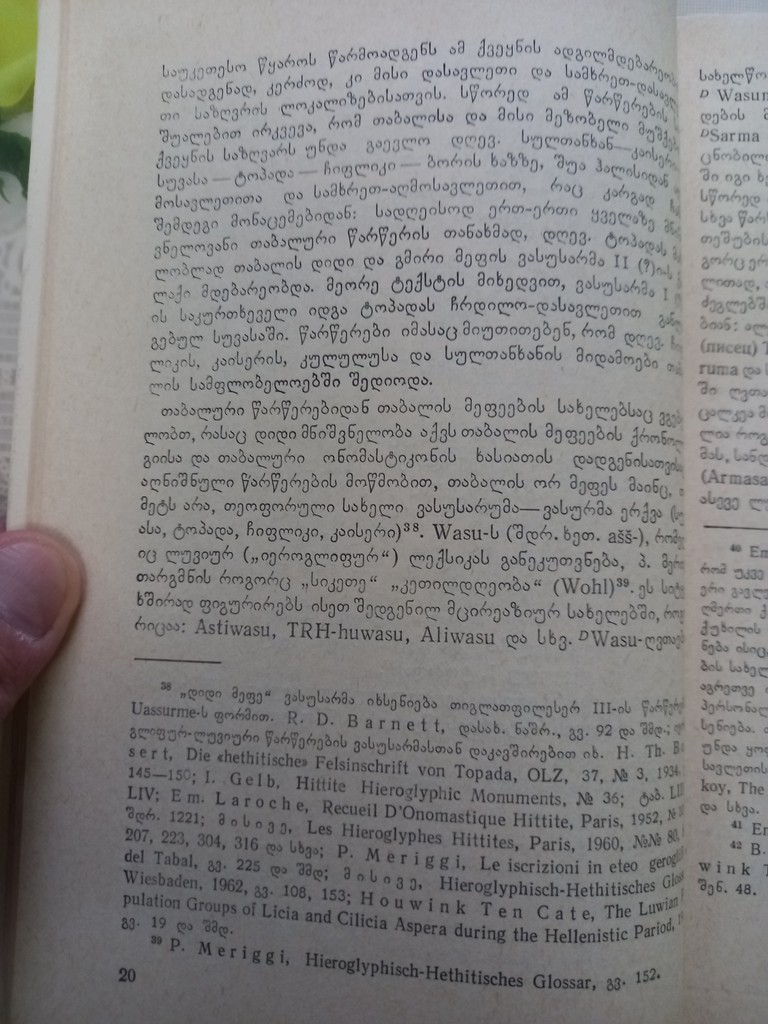 საუკეთესო წყაროს წარმოადგენს ამ ქვეყნის
დასადგენად, კერძოდ, კი მისი დასავლეთი და
თი საზღვრის ლოკალიზებისათვის. სწორედ ამ წარწერების
შუალებით ირკვევა, რომ თაბალისა და მისი მეზობელი
ქვეყნის საზღვარს უნდა გაევლო დღევ. სულთანხან—
სუვასა — ტოპადა — ჩიფლიკი — ბორის ხაზზე, შუა ჰალისიდან
მოსავლეთითა და სამხრეთ-აღმოსავლეთით, რაც კარგად
შემდეგი მონაცემებიდან: სადღეისოდ ერთ-ერთი ყველაზე
ვნელოვანი თაბალური წარწერის თანახმად, დღევ. ტოპადას
ლობლად თაბალის დიდი და გმირი მეფის ვასუსარმა II
ლაქი მდებარეობდა. მეორე ტექსტის მიხედვით, ვასუსარმა I
ის საკურთხეველი იდგა ტოპადას ჩრდილო-დასავლეთით
გებულ სუვასაში. წარწერები იმასაც მიუთითებენ, რომ დღევ.
ლიკის, კაისერის, კულულუსა და სულთანხანის მიდამოები
ლის სამფლობელოებში შედიოდა.
თაბალური წარწერებიდან თაბალის მეფეების სახელებსაც
ლობთ, რასაც დიდი მნიშვნელობა აქვს თაბალის მეფეების
გიისა და თაბალური ონომასტიკონის ხასიათის
აღნიშნული წარწერების მოწმობით, თაბალის ორ მეფეს მაინც,
მეტს არა, თეოფორული სახელი ვასუსარუმა—ვასურმა ერქვა
ასა, ტოპადა, ჩიფლიკი, კაისერი)³⁸. Wasu-ს (შდრ. ხეთ. ašš-),
იც ლუვიურ („იეროგლიფურ“) ლექსიკას განეკუთვნება, პ.
თარგმნის როგორც „სიკეთე“ „კეთილდღეობა“ (Wohl)³⁹. ეს
ხშირად ფიგურირებს ისეთ შედგენილ მცირეაზიურ სახელებში,
რიცაა: Astiwasu, TRH-huwasu, Aliwasu და სხვ. ᴰWasu-
³⁸ „დიდი მეფე“ ვასუსარმა იხსენიება თიგლათფილესერ III-ის
Uassurme-ს ფორმით. R. D. Barnett, დასახ. ნაშრ., გვ. 92 და შმდ.;
გლიფურ-ლუვიური წარწერების ვასუსარმასთან დაკავშირებით იხ. H. Th.
sert, Die «hethitische» Felsinschrift von Topada, OLZ, 37, № 3, 1934
145—150; I. Gelb, Hittite Hieroglyphic Monuments, № 36; ტაბ.
LIV; Em. Laroche, Recueil D'Onomastique Hittite, Paris, 1952,
შდრ. 1221; მისივე, Les Hieroglyphes Hittites, Paris, 1960, №№ 80,
207, 223, 304, 316 და სხვა; P. Meriggi, Le iscrizioni in eteo
del Tabal, გვ. 225 და შმდ; მისივე, Hieroglyphisch-Hethitisches
Wiesbaden, 1962, გვ. 108, 153; Houwink Ten Cate, The Luwian
pulation Groups of Licia and Cilicia Aspera during the Hellenistic Pariod,
გვ. 19 და შმდ.
³⁹ P. Meriggi, Hieroglyphisch-Hethitisches Glossar, გვ. 152.
20
ᴰ Wasu
ᴰSarma
ში იგი
სწორედ
(писец)
ruma და
ში
მას,
(Armasa
ასევე
⁴⁰ Em
რომ უკვე
ნება
აგრეთვე
უნდა
koy, The
და სხვა.
⁴¹
⁴² B.
wink T
შენ. 48.